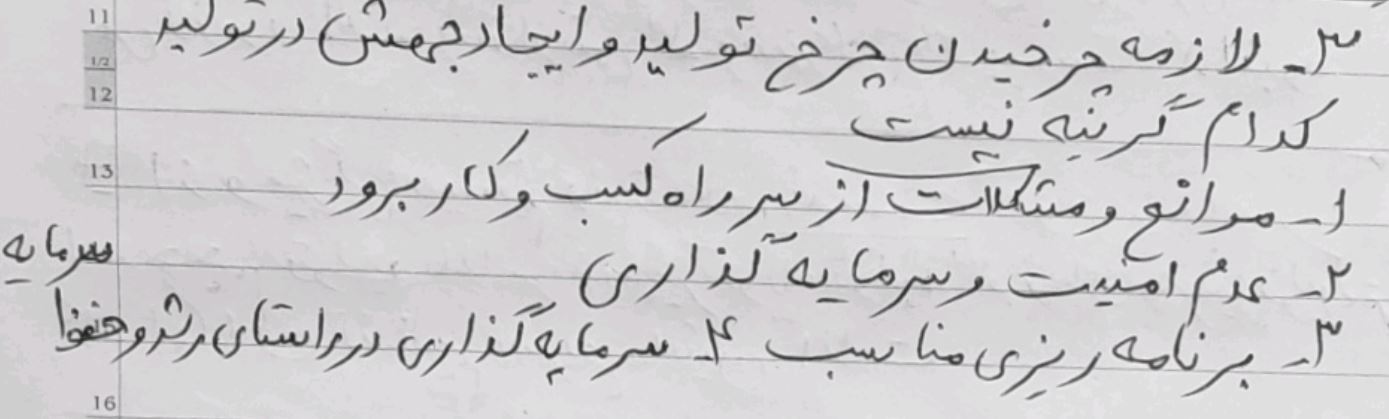 11
۳- لازمه چرخیدن چرخ تولید و ایجاد جهش در تولید
1/2
12
کدام گزینه نیست
13
۱- موانع و مشکلات از سر راه کسب و کار برود
۲- عدم امنیت و سرمایه گذاری
۳- برنامه ریزی مناسب ۴- سرمایه گذاری در راستای رشد و حفظ سرمایه
16